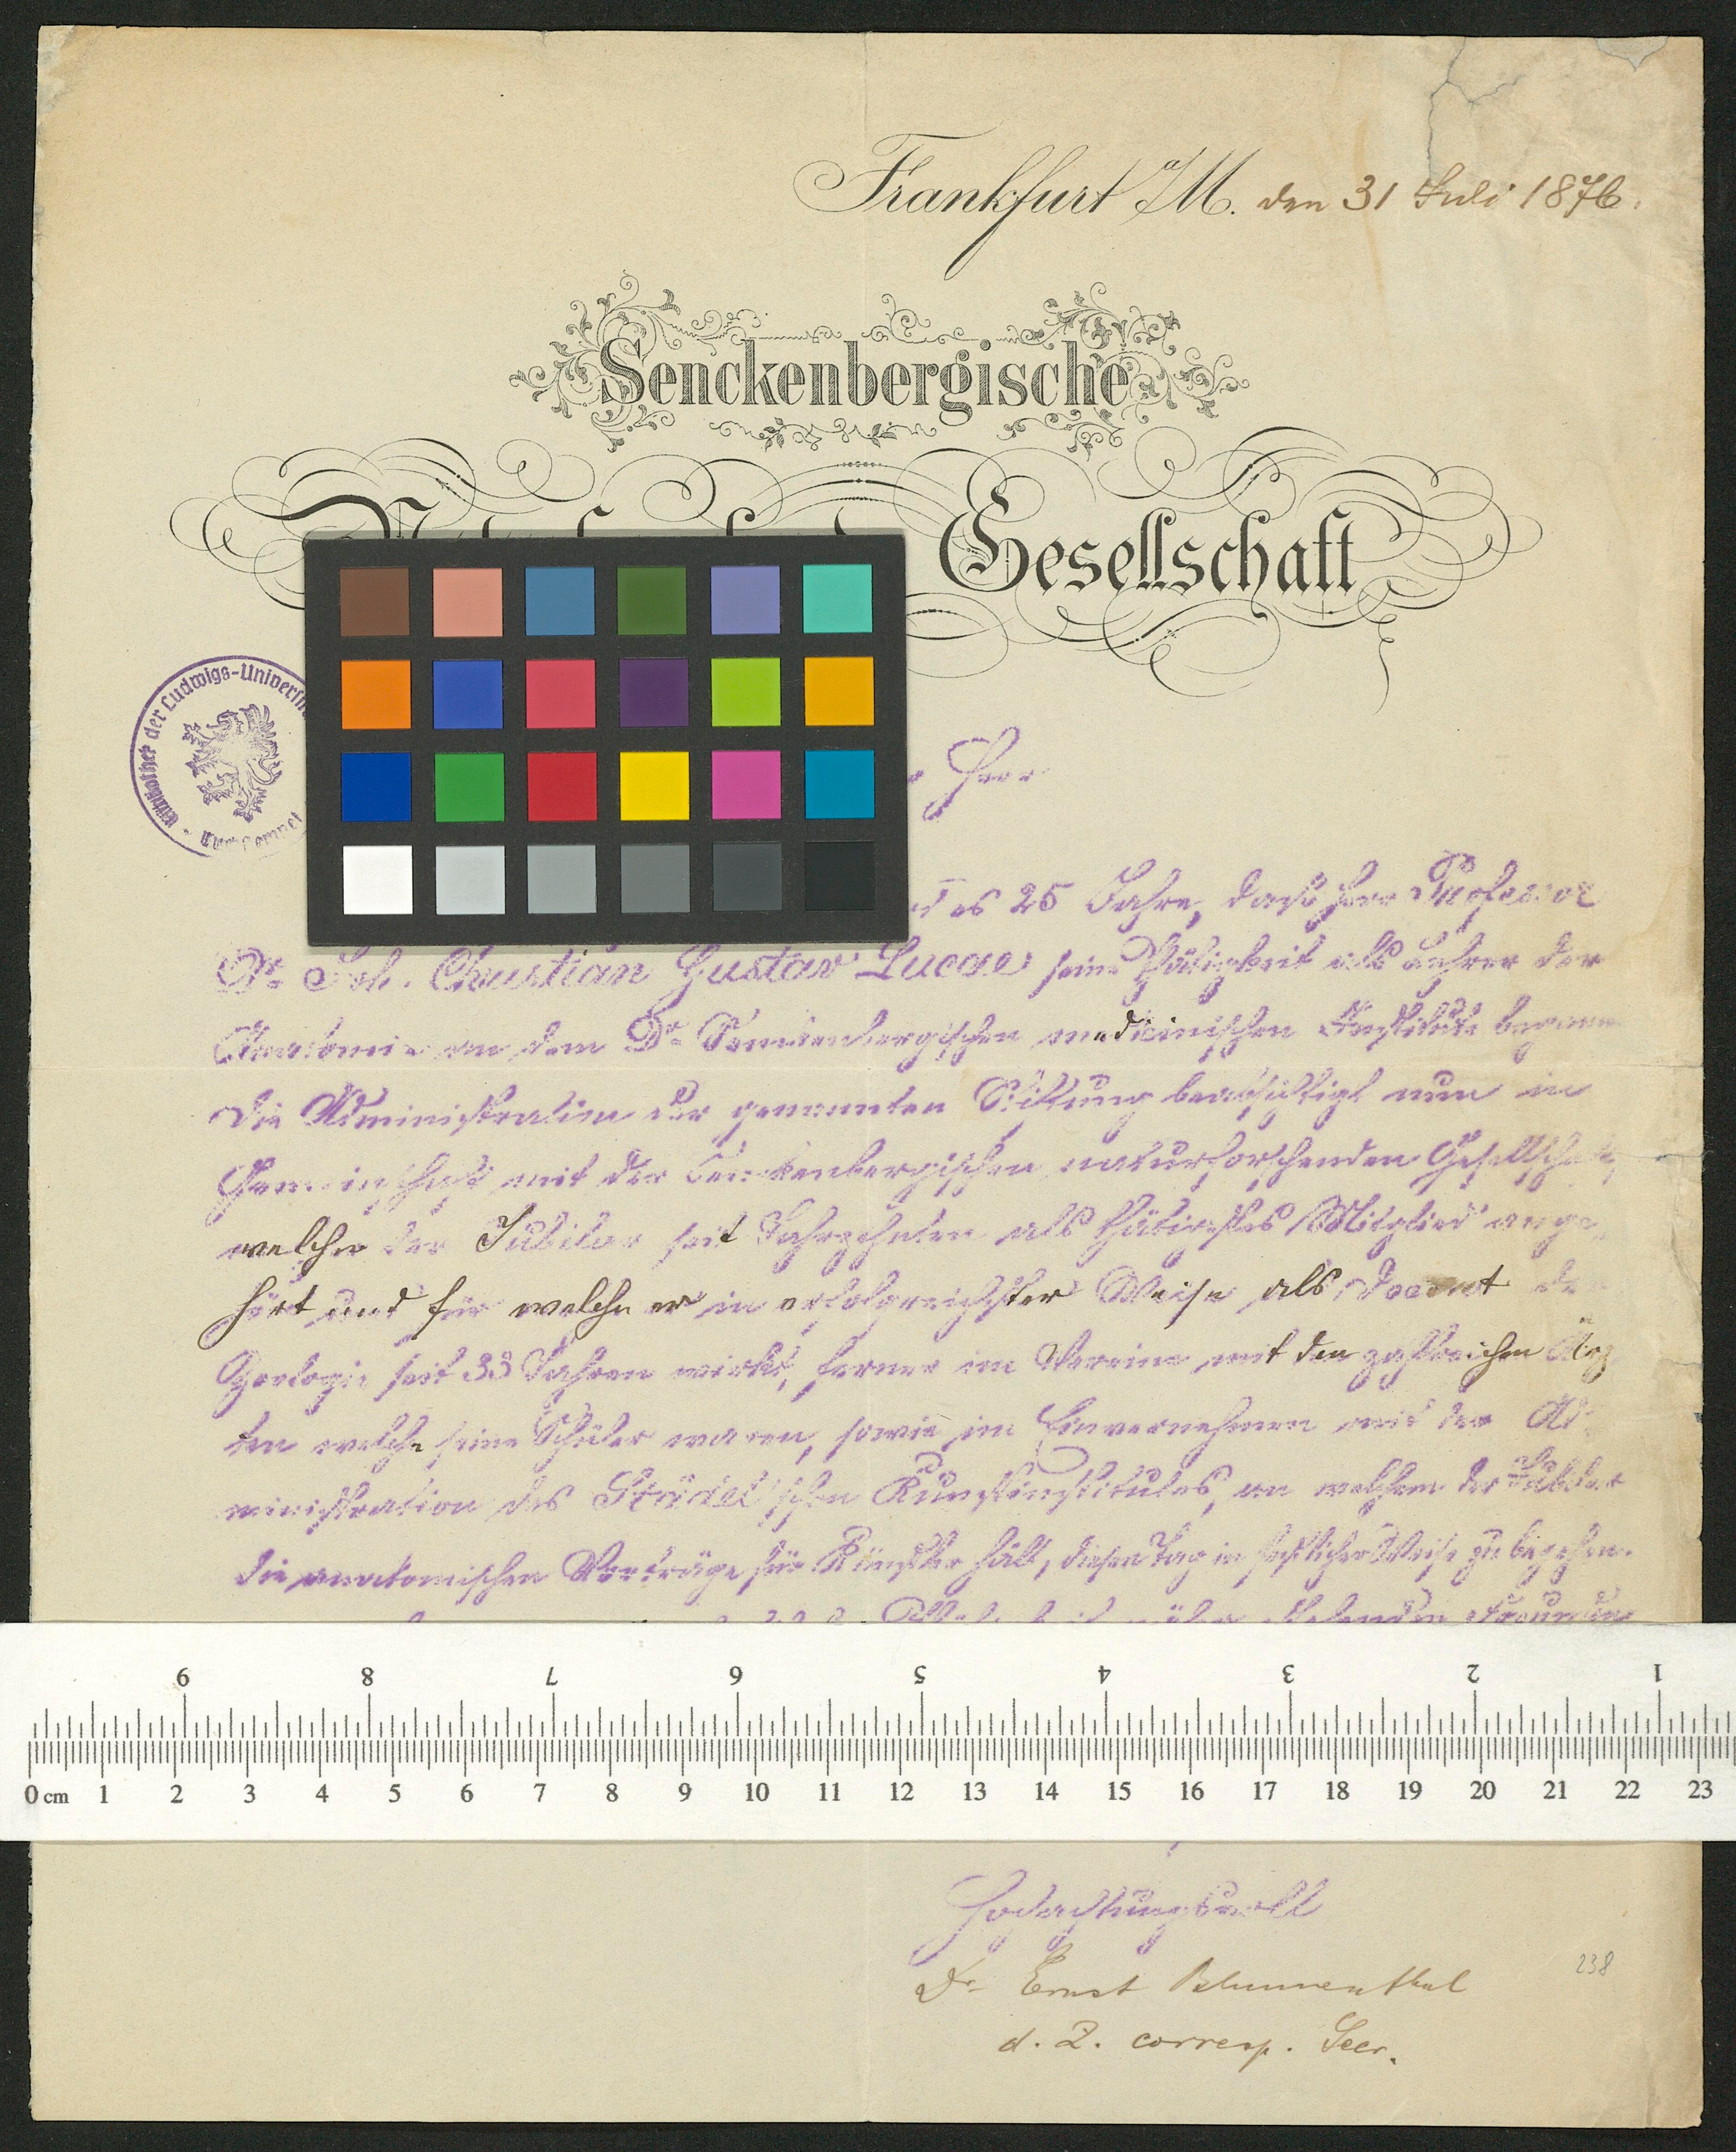 Frankfurt a/M. den 31 Juli 1876.
Senckenbergische
Gesellschaft
Bibliothek der Ludwigs-Univers
Herr
es 25 Jahre, dass Herr Professor
Dr. Joh. Christian Gustav Lucae seine Thätigkeit als Lehrer der
Anatomie an dem Dr. Senckenbergischen medicinischen Institute begann
Die Administration der genannten Stiftung beabsichtigt nun in
Gemeinschaft mit der Senckenbergischen naturforschenden Gesellschaft,
welcher der Jubilar seit Jahrzehnten als thätigstes Mitglied ange-
hört und für welche er in erfolgreichster Weise als Docent de
Zoologie seit 33 Jahren wirkt, ferner im Vereine mit den zahlreichen Aerz
ten welche seine Schüler waren, sowie im Einvernehmen mit der Ad-
ministration des Städel'schen Kunstinstitutes, an welchem der Jubilar
die anatomischen Vorträge für Künstler hält, diesen Tag in festlicher Weise zu begehen.
9 8 7 6 5 4 3 2 1
0 cm 1 2 3 4 5 6 7 8 9 10 11 12 13 14 15 16 17 18 19 20 21 22 23
Hochachtungsvoll
Dr. Ernst Blumenthal
238
d. Z. corresp. Secr.